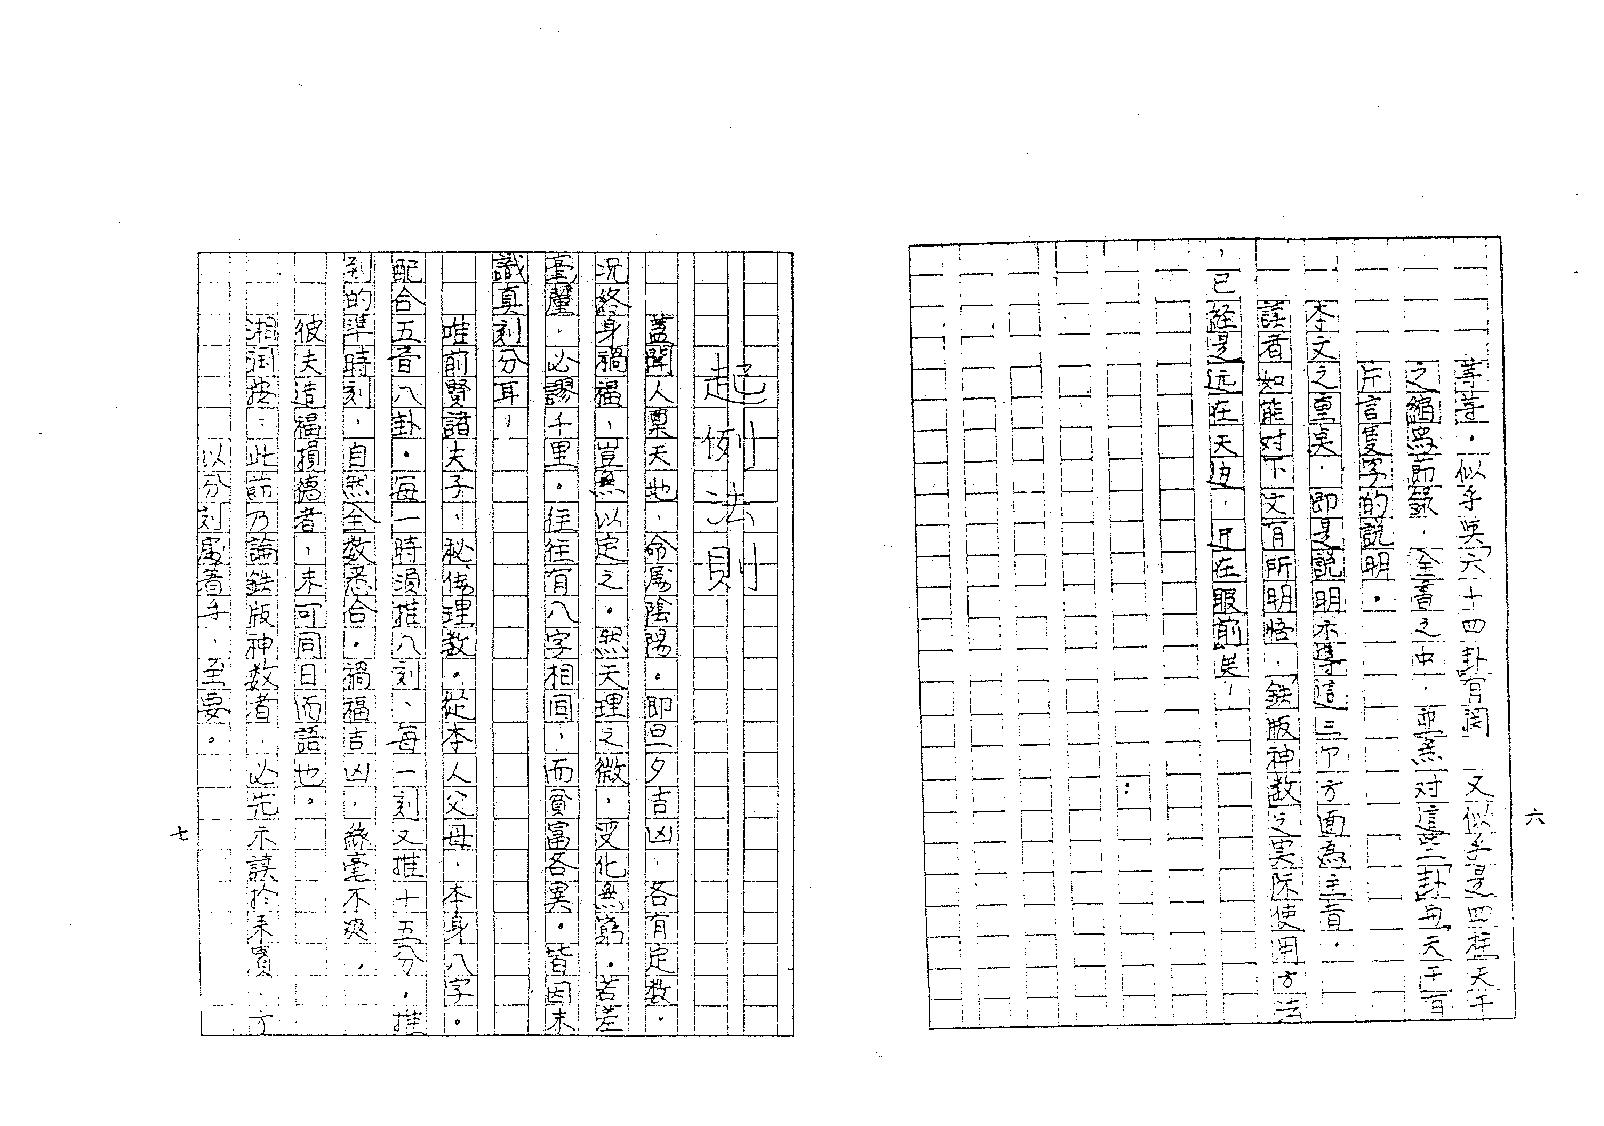 等等。似乎與六十四卦有関 又似乎是四柱天干
之縮寫節錄、全章之中、並無対這些卦与天干有
片言隻字的説明。
本文之重奌、即是説明示導這三个方面為主旨。
読者如能対下文有所明悟、鉄版神数之実际使用方法
、已経是远在天边、近在眼前矣、
六
起例法則
蓋聞人禀天地、命属陰陽。即旦夕吉凶、各有定数。
况終身禍福、豈無以定之。然天理之微、変化無窮。若差
毫釐、必謬千里。往往有八字相同、而貧富各異。皆因未
識真刻分耳、
唯前賢諸夫子、秘傳理数。從本人父母、本身八字。
配合五音八卦。每一時須推八刻、每一刻又推十五分，推
到的準時刻、自然全数悉合。禍福吉凶、絲毫不爽，
彼夫造福損德者、未可同日而語也。
湘润按、此節乃論鉄版神数者、必先示謨於来賓、方
以分刻為着手、至要。
七